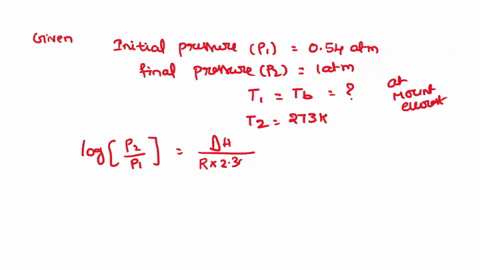 Given
Initial pressure (P1) = 0.54 atm
final pressure (P2) = 1atm
T1 = Tb = ?
at
Mount
T2 = 273K
log[P2/P1] = ΔH/R×2.3